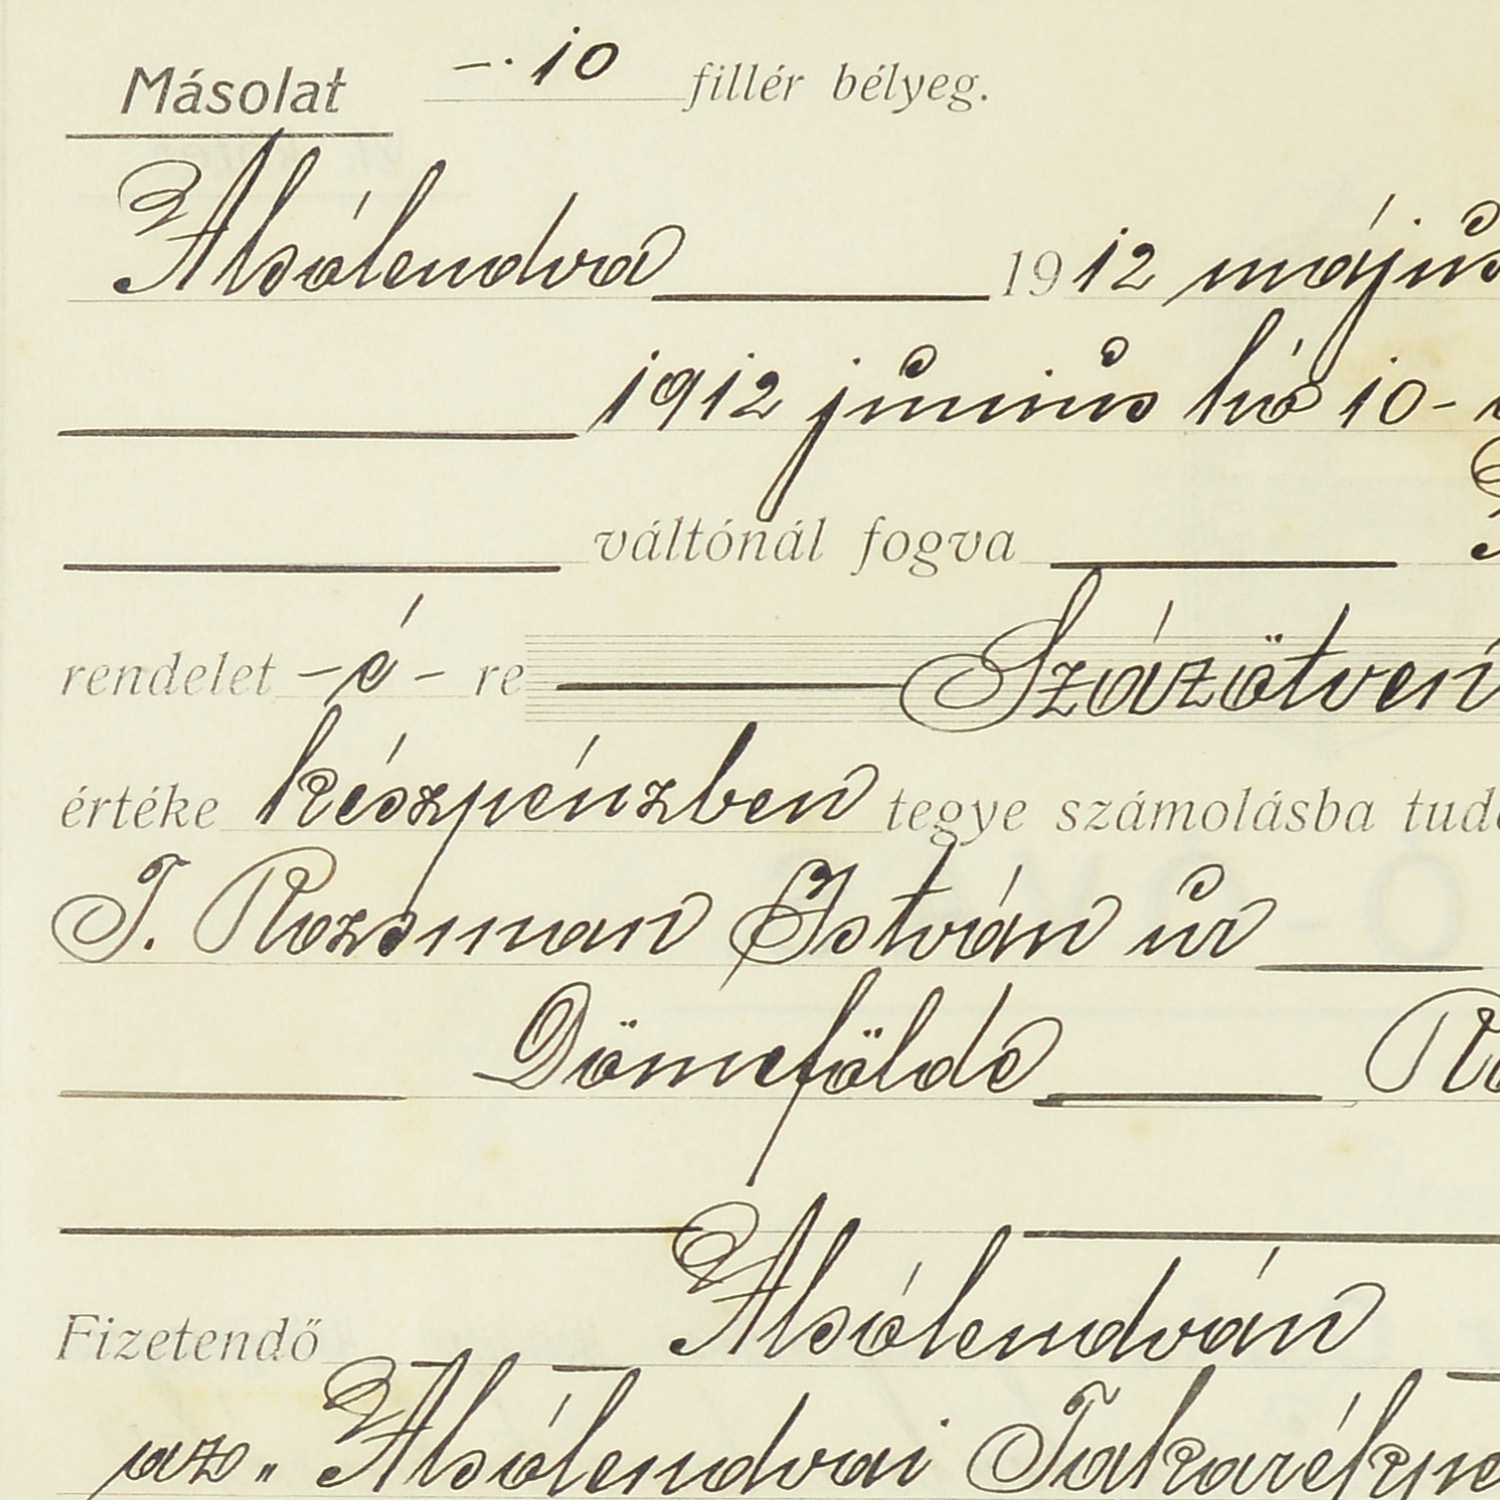 Másolat —·10 fillér bélyeg.
Alsólendva 1912 május
1912 június hó 10-
váltónál fogva
rendelet -é- re Százötven
értéke készpénzben tegye számolásba
T. Rozsman István úr
Dömefölde
Alsólendván
Fizetendő
az „ Alsólendvai